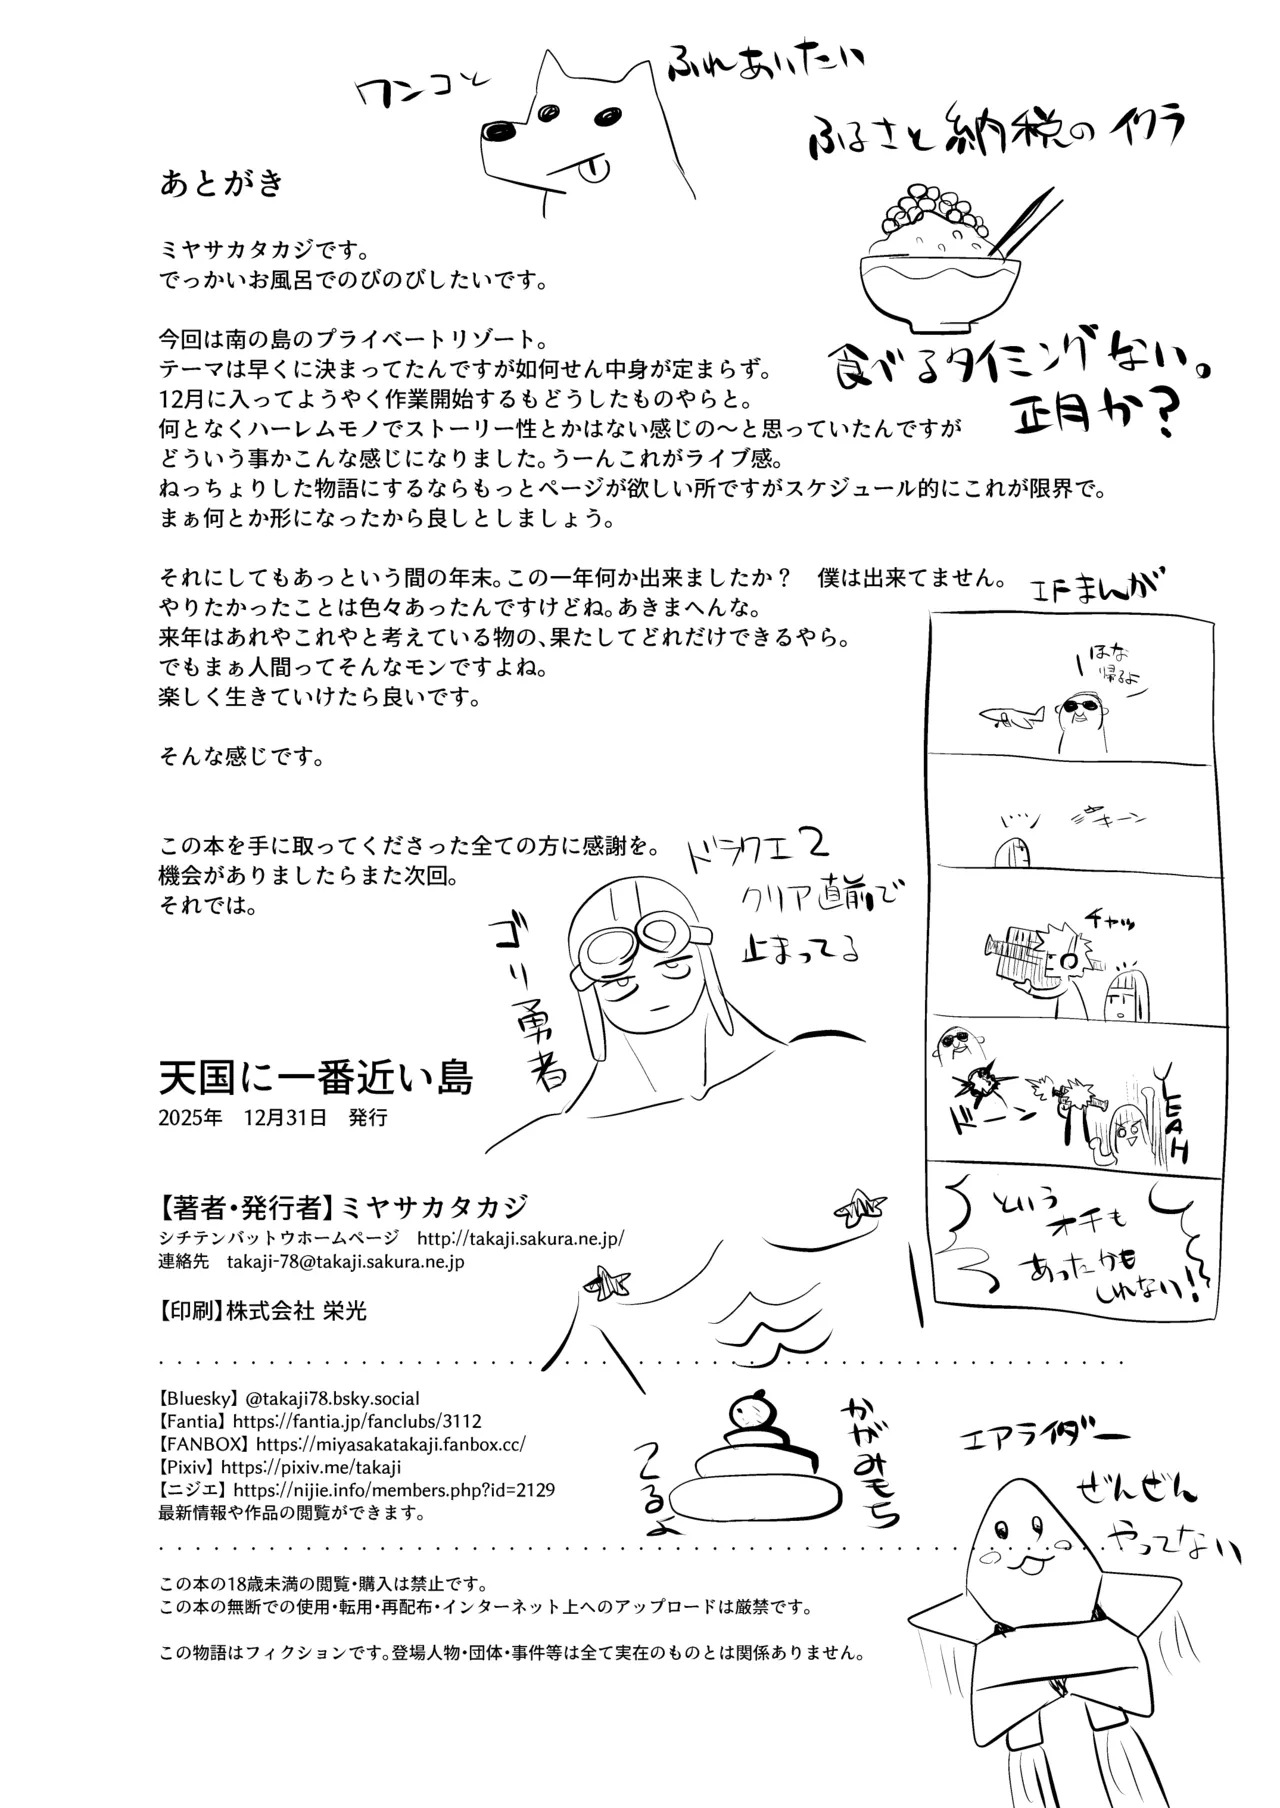 ワンコと
ふれあいたい
ふるさと納税のイクラ
食べるタイミングない。
正月か?
あとがき
ミヤサカタカジです。
でっかいお風呂でのびのびしたいです。
今回は南の島のプライベートリゾート。
テーマは早くに決まってたんですが如何せん中身が定まらず。
12月に入ってようやく作業開始するもどうしたものやらと。
何となくハーレムモノでストーリー性とかはない感じの〜と思っていたんですが
どういう事かこんな感じになりました。うーんこれがライブ感。
ねっちょりした物語にするならもっとページが欲しい所ですがスケジュール的にこれが限界で。
まぁ何とか形になったから良しとしましょう。
それにしてもあっという間の年末。この一年何か出来ましたか？　僕は出来てません。
やりたかったことは色々あったんですけどね。あきまへんな。
来年はあれやこれやと考えている物の、果たしてどれだけできるやら。
でもまぁ人間ってそんなモンですよね。
楽しく生きていけたら良いです。
そんな感じです。
この本を手に取ってくださった全ての方に感謝を。
機会がありましたらまた次回。
それでは。
IFまんが
ほな
帰るよ
キーン
チャッ
ドーン
YEAH
という
オチも
あったかも
しれない!
ドラクエ2
クリア直前で
止まってる
ゴリ勇者
天国に一番近い島
2025年　12月31日　発行
【著者・発行者】ミヤサカタカジ
シチテンバットウホームページ　http://takaji.sakura.ne.jp/
連絡先　takaji-78@takaji.sakura.ne.jp
【印刷】株式会社 栄光
【Bluesky】@takaji78.bsky.social
【Fantia】https://fantia.jp/fanclubs/3112
【FANBOX】https://miyasakatakaji.fanbox.cc/
【Pixiv】https://pixiv.me/takaji
【ニジエ】https://nijie.info/members.php?id=2129
最新情報や作品の閲覧ができます。
かがみもち
くるよ
エアライダー
ぜんぜん
やってない
この本の18歳未満の閲覧・購入は禁止です。
この本の無断での使用・転用・再配布・インターネット上へのアップロードは厳禁です。
この物語はフィクションです。登場人物・団体・事件等は全て実在のものとは関係ありません。